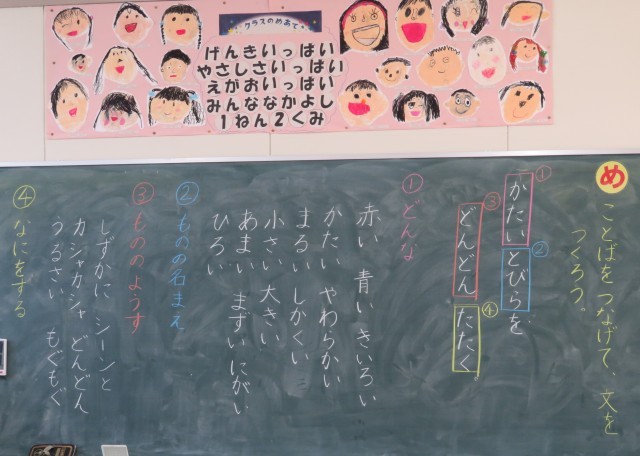 クラスのめあて
げんきいっぱい
やさしさいっぱい
えがおいっぱい
みんななかよし
1ねん2くみ
め
ことばをつなげて、文を
つくろう。
①かたい②とびらを
③どんどん④たたく。
①どんな
赤い 青い きいろい
かたい やわらかい
まるい しかくい
小さい 大きい
あまい まずい にがい
ひろい
②ものの名まえ
③もののようす
しずかに シーンと
カシャカシャ どんどん
うるさい もぐもぐ
④なにをする